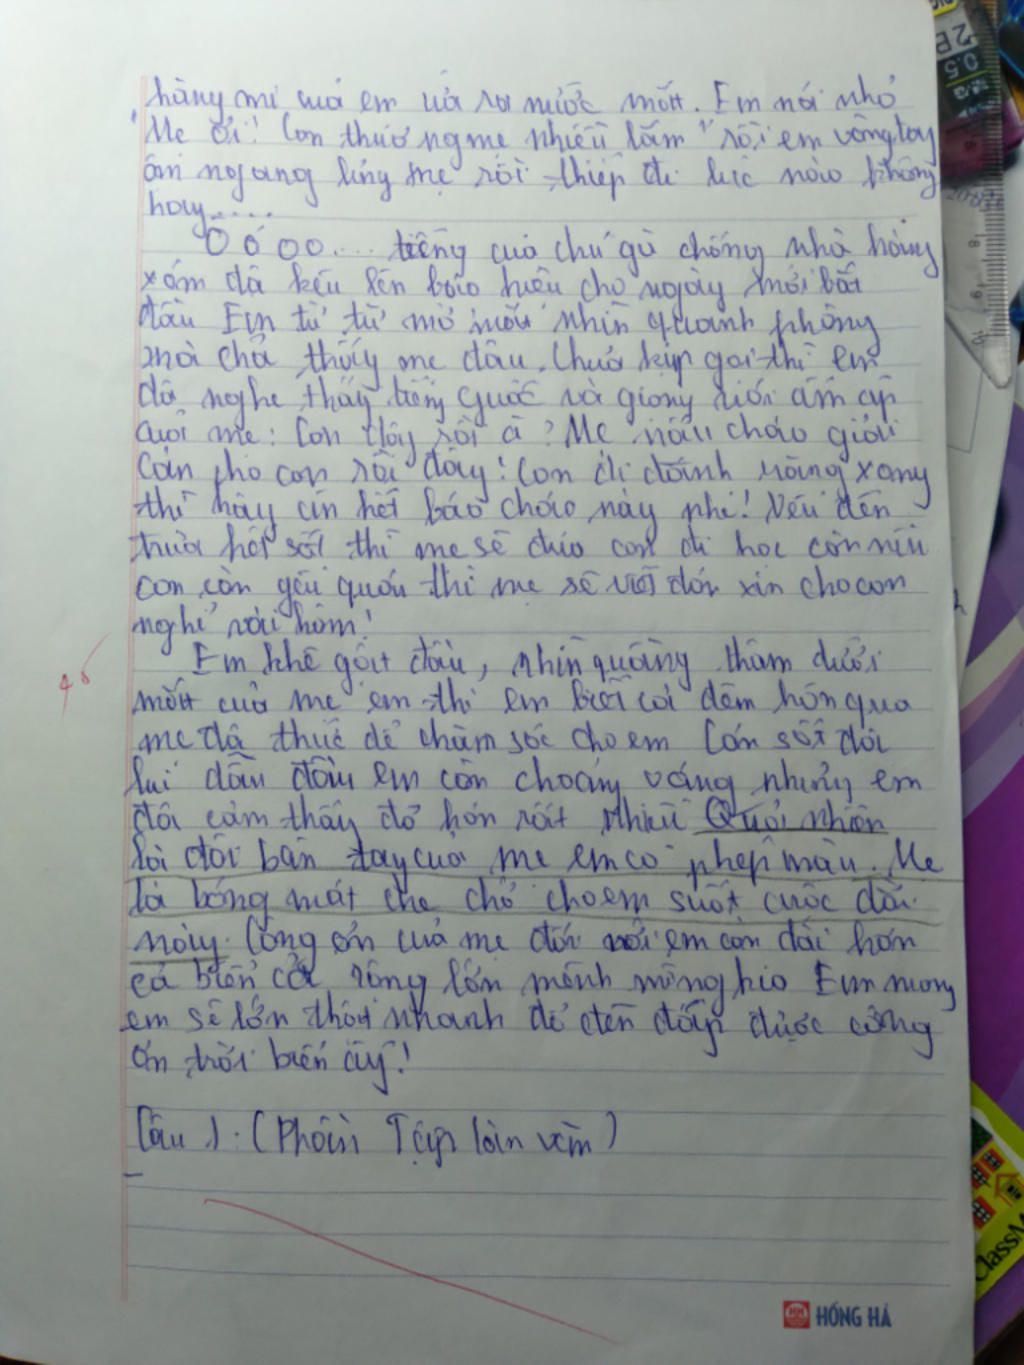 hàng mi của em ứa ra nước mắt. Em nói nhỏ
"Mẹ ơi! Con thương mẹ nhiều lắm" rồi em vòng tay
ôm ngang lưng mẹ rồi thiếp đi lúc nào không
hay....
Ò ó oo.... tiếng của chú gà trống nhà hàng
xóm đã kêu lên báo hiệu cho ngày mới bắt
đầu Em từ từ mở mắt nhìn quanh phòng
mà chả thấy mẹ đâu. Chưa kịp gọi thì em
đã nghe thấy tiếng guốc và giọng nói ấm áp
của mẹ: Con dậy rồi à? Mẹ nấu cháo giải
cảm cho con rồi đây! Con đi đánh răng xong
thì hãy ăn hết bát cháo này nhé! Nếu đến
trưa hết sốt thì mẹ sẽ đưa con đi học còn nếu
con còn yếu quá thì mẹ sẽ viết đơn xin cho con
nghỉ vài hôm!
Em khẽ gật đầu, nhìn quầng thâm dưới
mắt của mẹ em thì em biết cả đêm hôm qua
mẹ đã thức để chăm sóc cho em Cơn sốt đã
lui dần đầu em còn choáng váng nhưng em
đã cảm thấy đỡ hơn rất nhiều Quả nhiên
là đôi bàn tay của mẹ em có phép màu. Mẹ
là bóng mát che chở cho em suốt cuộc đời
này. Công ơn của mẹ đối với em còn dài hơn
cả biển cả rộng lớn mênh mông kia Em mong
em sẽ lớn thật nhanh để đền đáp được công
ơn trời biển ấy!
Câu 1: (Phần Tập làn văn)
HỒNG HÀ
2B
0.5
ClassM